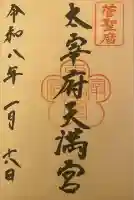 菅聖廟
太宰府天満宮
令和八年一月六日